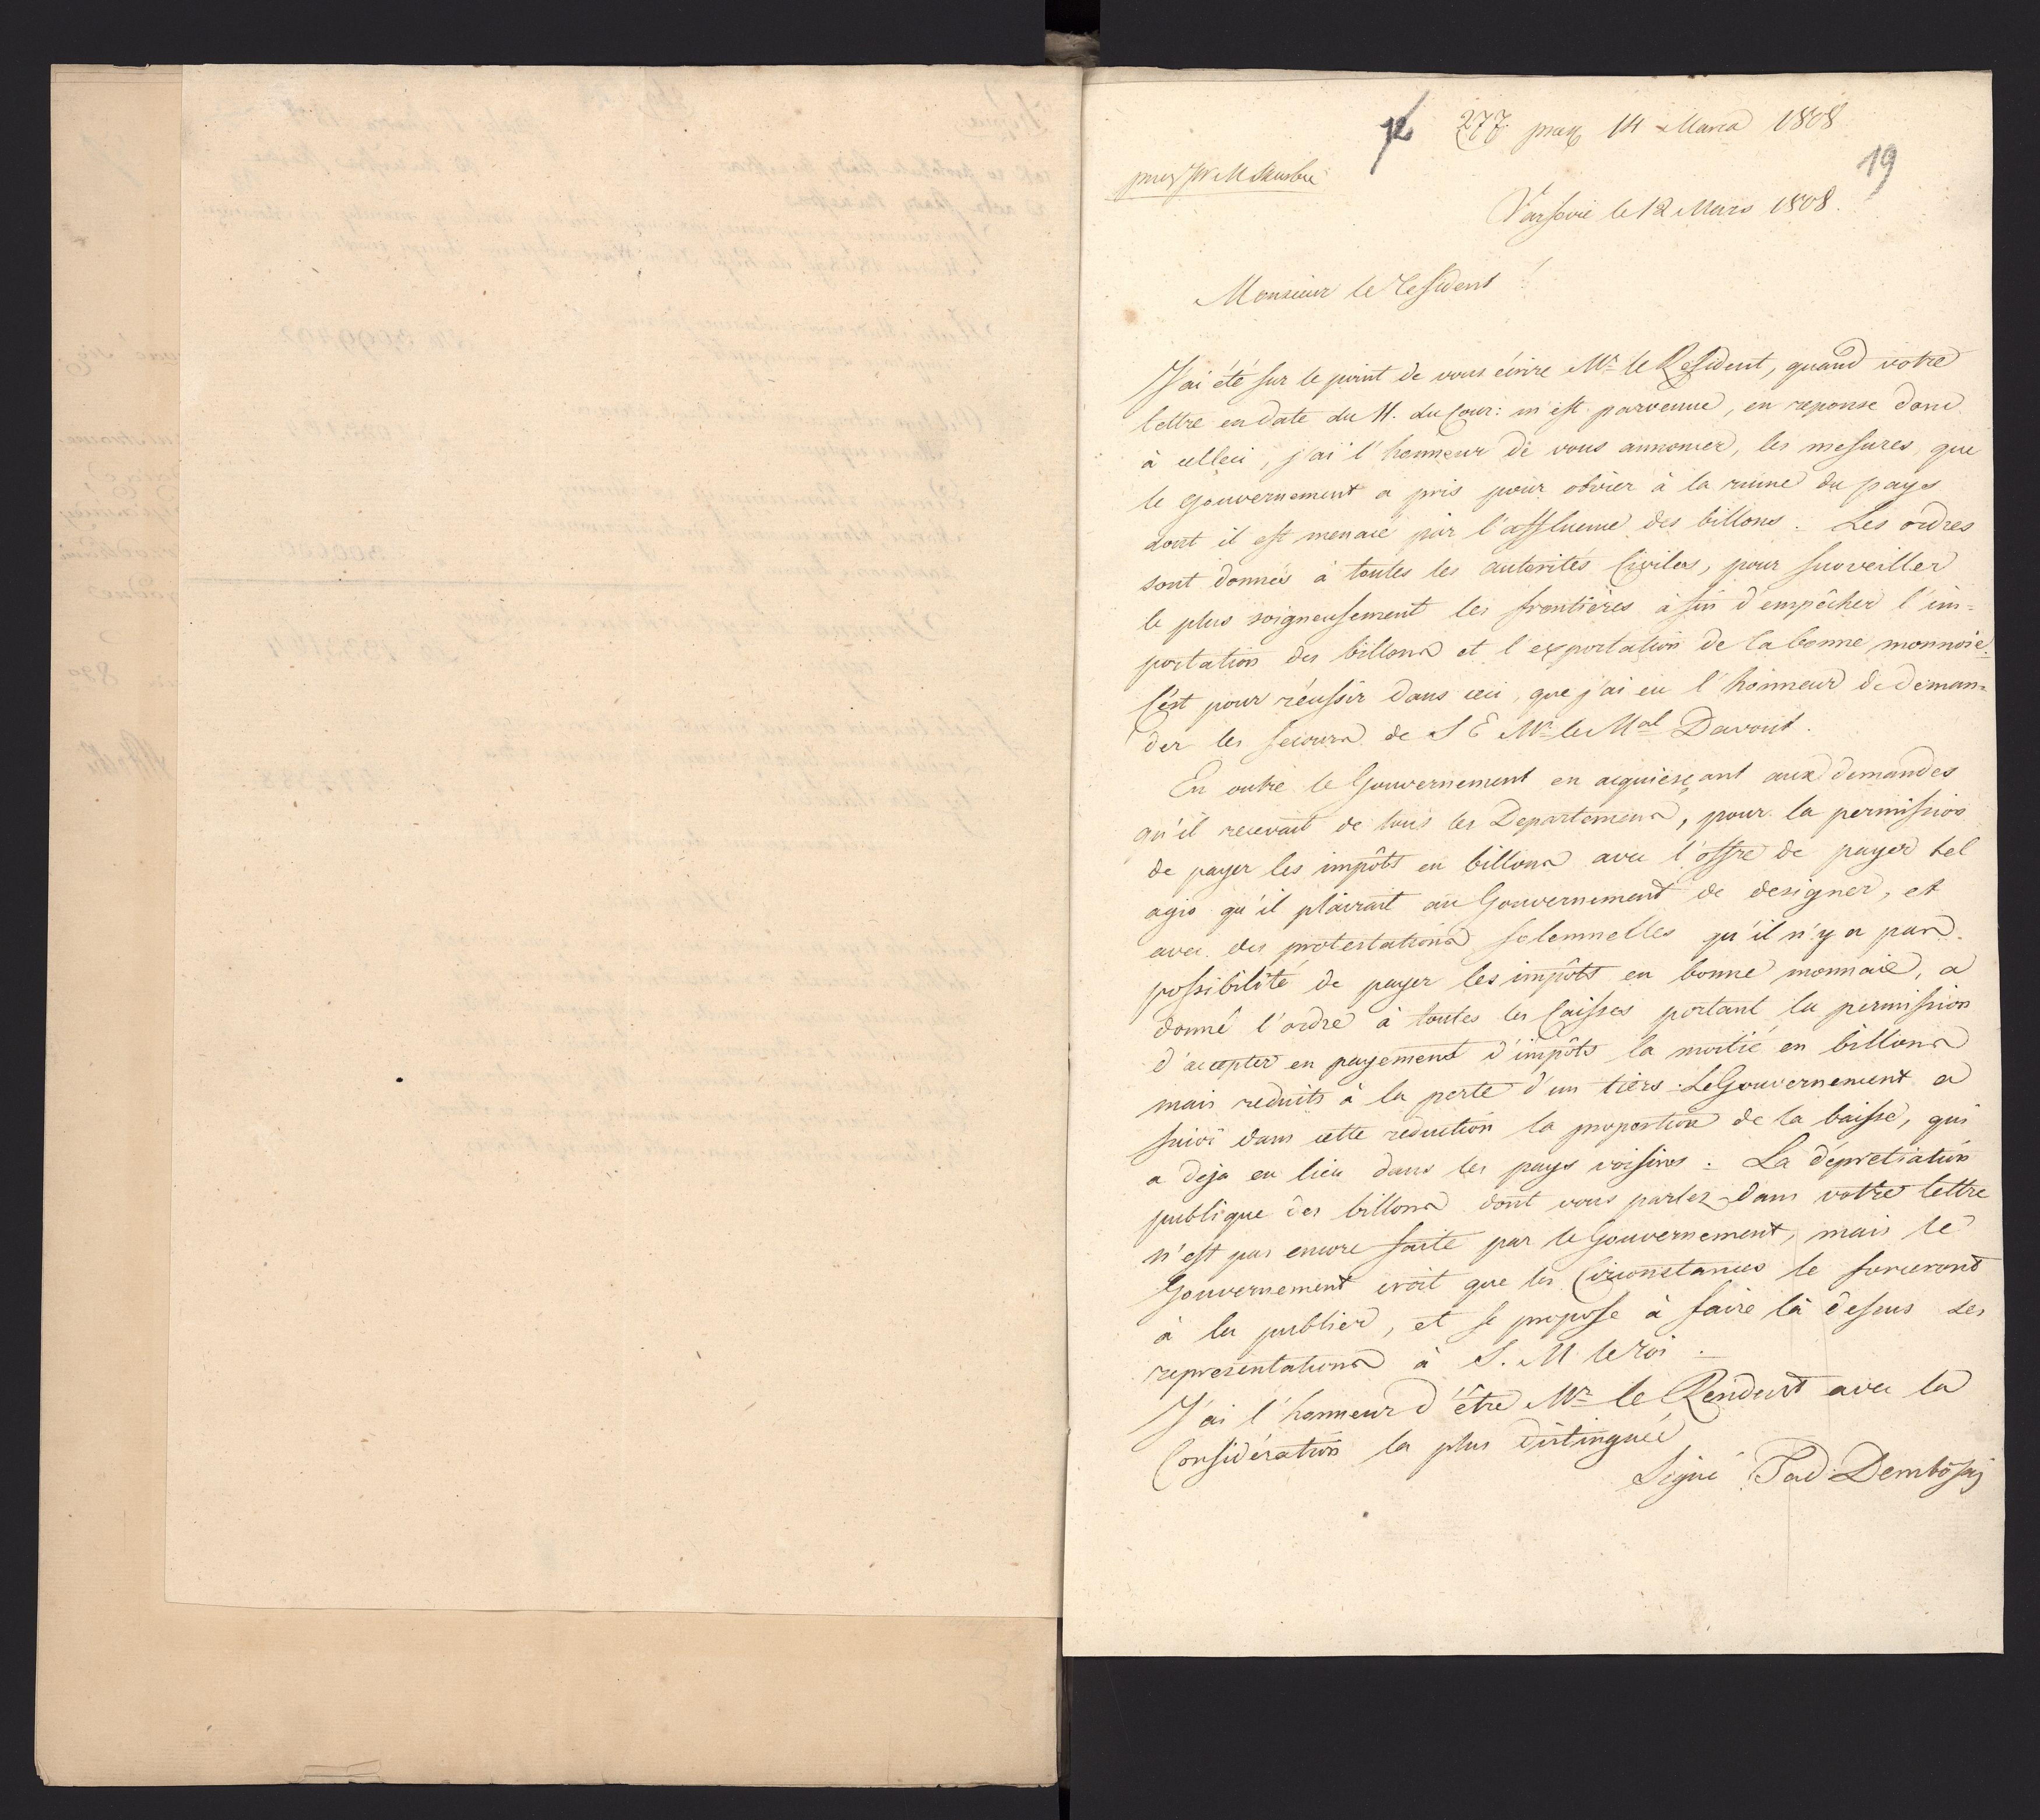 277 prax 14 Marca 1808
19
przez JW M Skarbu
Varsovie le 12 Mars 1808.
Monsieur le Resident!
J'ai été sur le point de vous écrire Mr le Resident, quand votre
lettre en date du 11. du Cour: m'est parvenue, en reponse donc
à celleci, j'ai l'honneur de vous annoncer, les mesures que
le Gouvernement a pris pour obvier à la ruine du pays
dont il est menacé par l'affluence des billons. Les ordres
sont donnés à toutes les autorités Civiles, pour surveiller
le plus soigneusement les frontières à fin d'empêcher l'im=
portation des billons et l'exportation de la bonne monnoie.
C'est pour réussir dans ceci, que j'ai eu l'honneur de deman=
der les secours de S E Mr le Mal Davout.
En outre le Gouvernement en acquiesçant aux demandes
qu'il recevait de tous les Departemens, pour la permission
de payer les impôts en billons avec l'offre de payer tel
agio qu'il plairait au Gouvernement de designer, et
avec des protestations solemnelles qu'il n'y a pas
possibilité de payer les impôts en bonne monnaie, a
donné l'ordre à toutes les Caisses portant la permission
d'accepter en payement d'impôts la moitié en billons
mais reduits à la perte d'un tiers. Le Gouvernement a
suivi dans cette reduction la proportion de la baisse, qui
a deja eu lieu dans les pays voisins. La dépretiation
publique des billons dont vous parlez dans votre lettre
n'est pas encore faite par le Gouvernement, mais le
Gouvernement croit que les Circonstances le forceront
à la publier, et se propose à faire là dessus ses
representations à S. M le Roi.
J'ai l'honneur d'être Mr le Resident avec la
Considération la plus distinguée
Signé Tad Dembowski